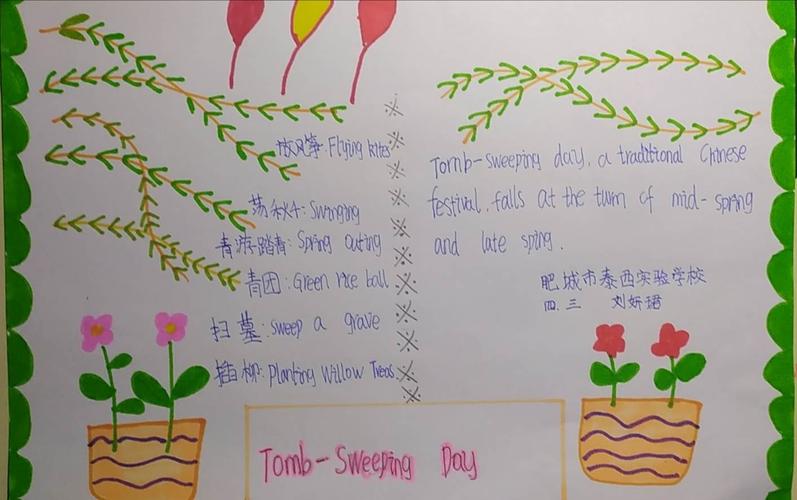 放风筝: Flying kites
荡秋千: Swinging
青游踏青: Spring outing
青团: Green rice ball
扫墓: sweep a grave
插柳: planting Willow Trees
Tomb-sweeping day, a traditional Chinese
festival, falls at the turn of mid-spring
and late sping.
肥城市泰西实验学校
四.三 刘妍珺
Tomb-Sweeping Day